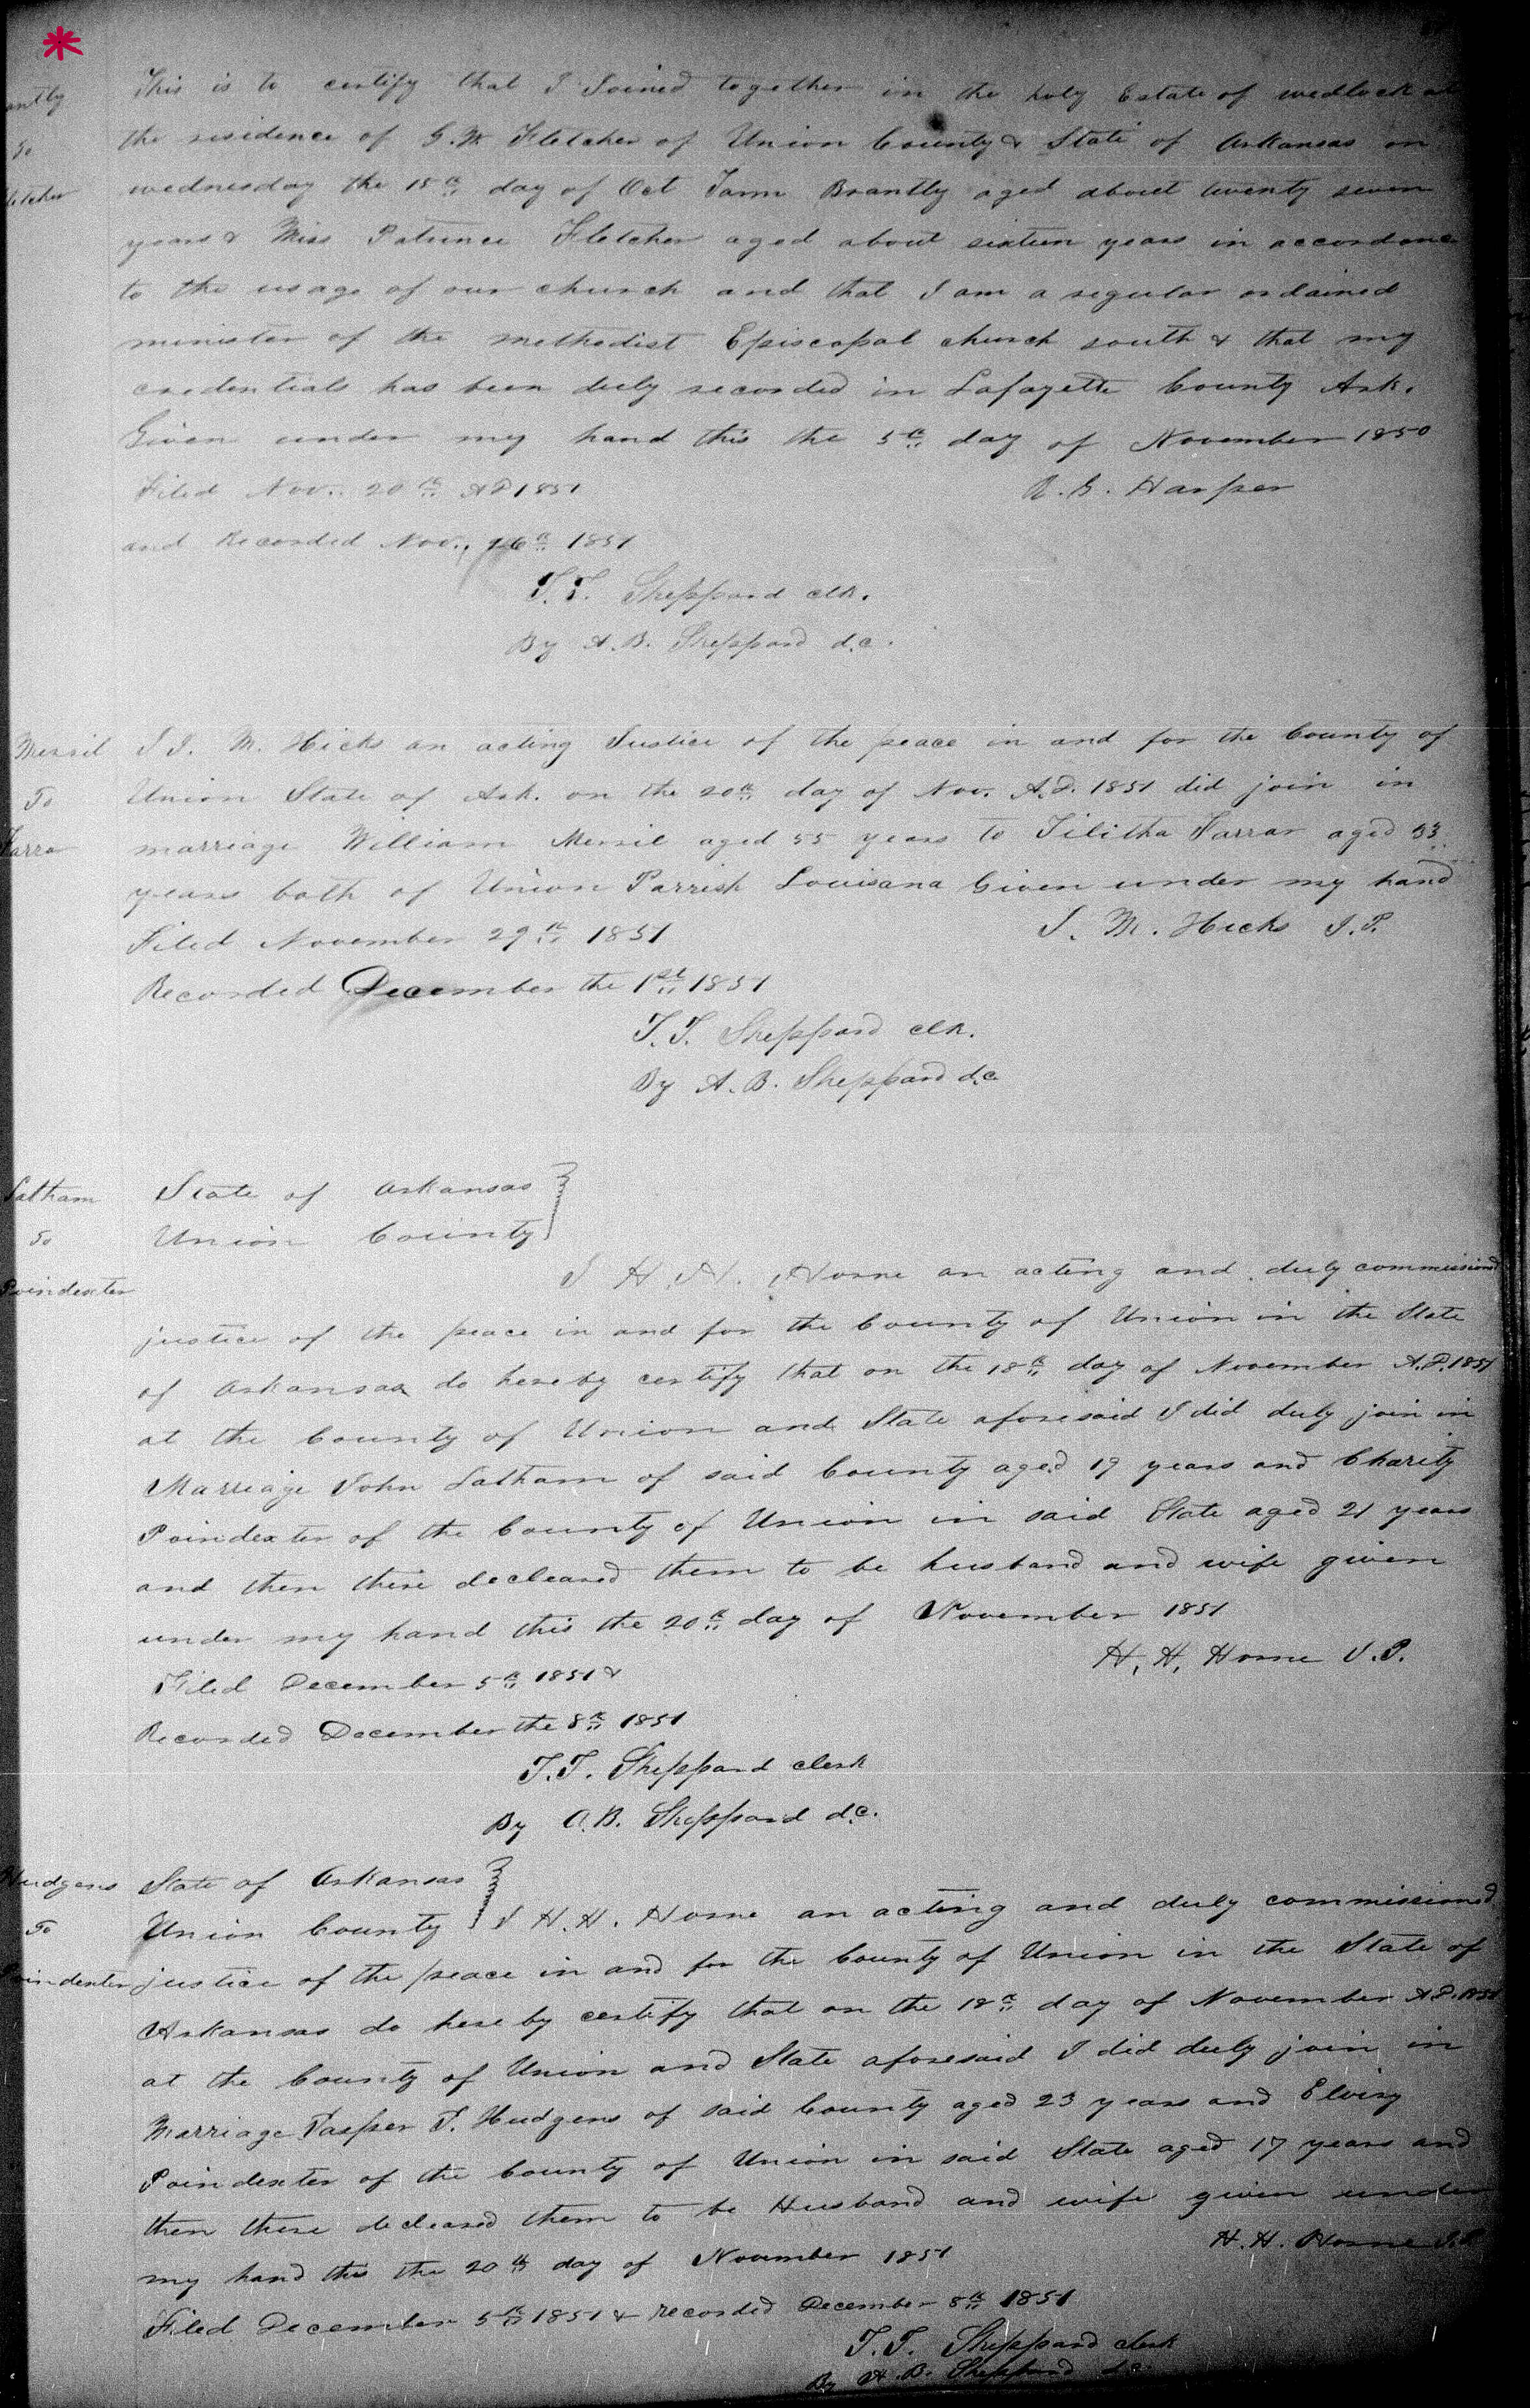 This is to certify that I Joined together in the holy Estate of wedlock at
antly
the residence of G. W. Fletcher of Union County & State of Arkansas on
To
wednesday the 15th day of Oct Brantly aged about twenty seven
letcher
years & Miss Fletcher aged about sixteen years in accordance
to the usage of our church and that I am a regular ordained
minister of the methodist Episcopal church south & that my
credentials has been duly recorded in Lafayette County Ark.
Given under my hand this the 5th day of November 1850
Filed Nov. 20th AD 1851
Harper
and Recorded Nov. 26th 1851
T. T. Sheppard clk.
By A. B. Sheppard d.c.
Merril
I J. M. Hicks an acting Justice of the peace in and for the County of
To
Union State of Ark. on the 20th day of Nov. A.D. 1851 did join in
Farra
marriage William Merril aged 55 years to Tilitha Farrar aged 33
years both of Union Parrish Louisana Given under my hand
Filed November 29th 1851
J. M. Hicks J. P.
Recorded December the 1st 1851
T. T. Sheppard clk.
By A. B. Sheppard d.c.
Latham
State of Arkansas
To
Union County
Poindexter
I H. H. Horne an acting and duly commissioned
justice of the peace in and for the County of Union in the State
of Arkansas do hereby certify that on the 18th day of November A.D. 1851
at the County of Union and State aforesaid I did duly join in
Marriage John Latham of said County aged 19 years and Charity
Poindexter of the County of Union in said State aged 21 years
and then thire decleared them to be husband and wife given
under my hand this the 20th day of November 1851
H. H. Horne J. P.
Filed December 5th 1851 &
Recorded December the 8th 1851
T. T. Sheppard clerk
By A. B. Sheppard d.c.
Hudgens
State of Arkansas
To
Union County I H. H. Horne an acting and duly commissioned
oindexter
justice of the peace in and for the County of Union in the State of
Arkansas do hereby certify that on the 18th day of November A.D. 1851
at the County of Union and State aforesaid I did duly join in
Marriage Jasper T. Hudgens of said County aged 23 years and Elviry
Poindexter of the County of Union in said State aged 17 years and
then there decleared them to be Husband and wife given under
my hand this the 20th day of November 1851
H. H. Horne J. P.
Filed December 5th 1851 & recorded December 8th 1851
T. T. Sheppard clerk
By A. B. Sheppard d.c.